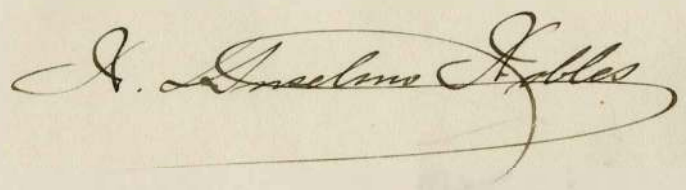 N. Anselmo Nobles